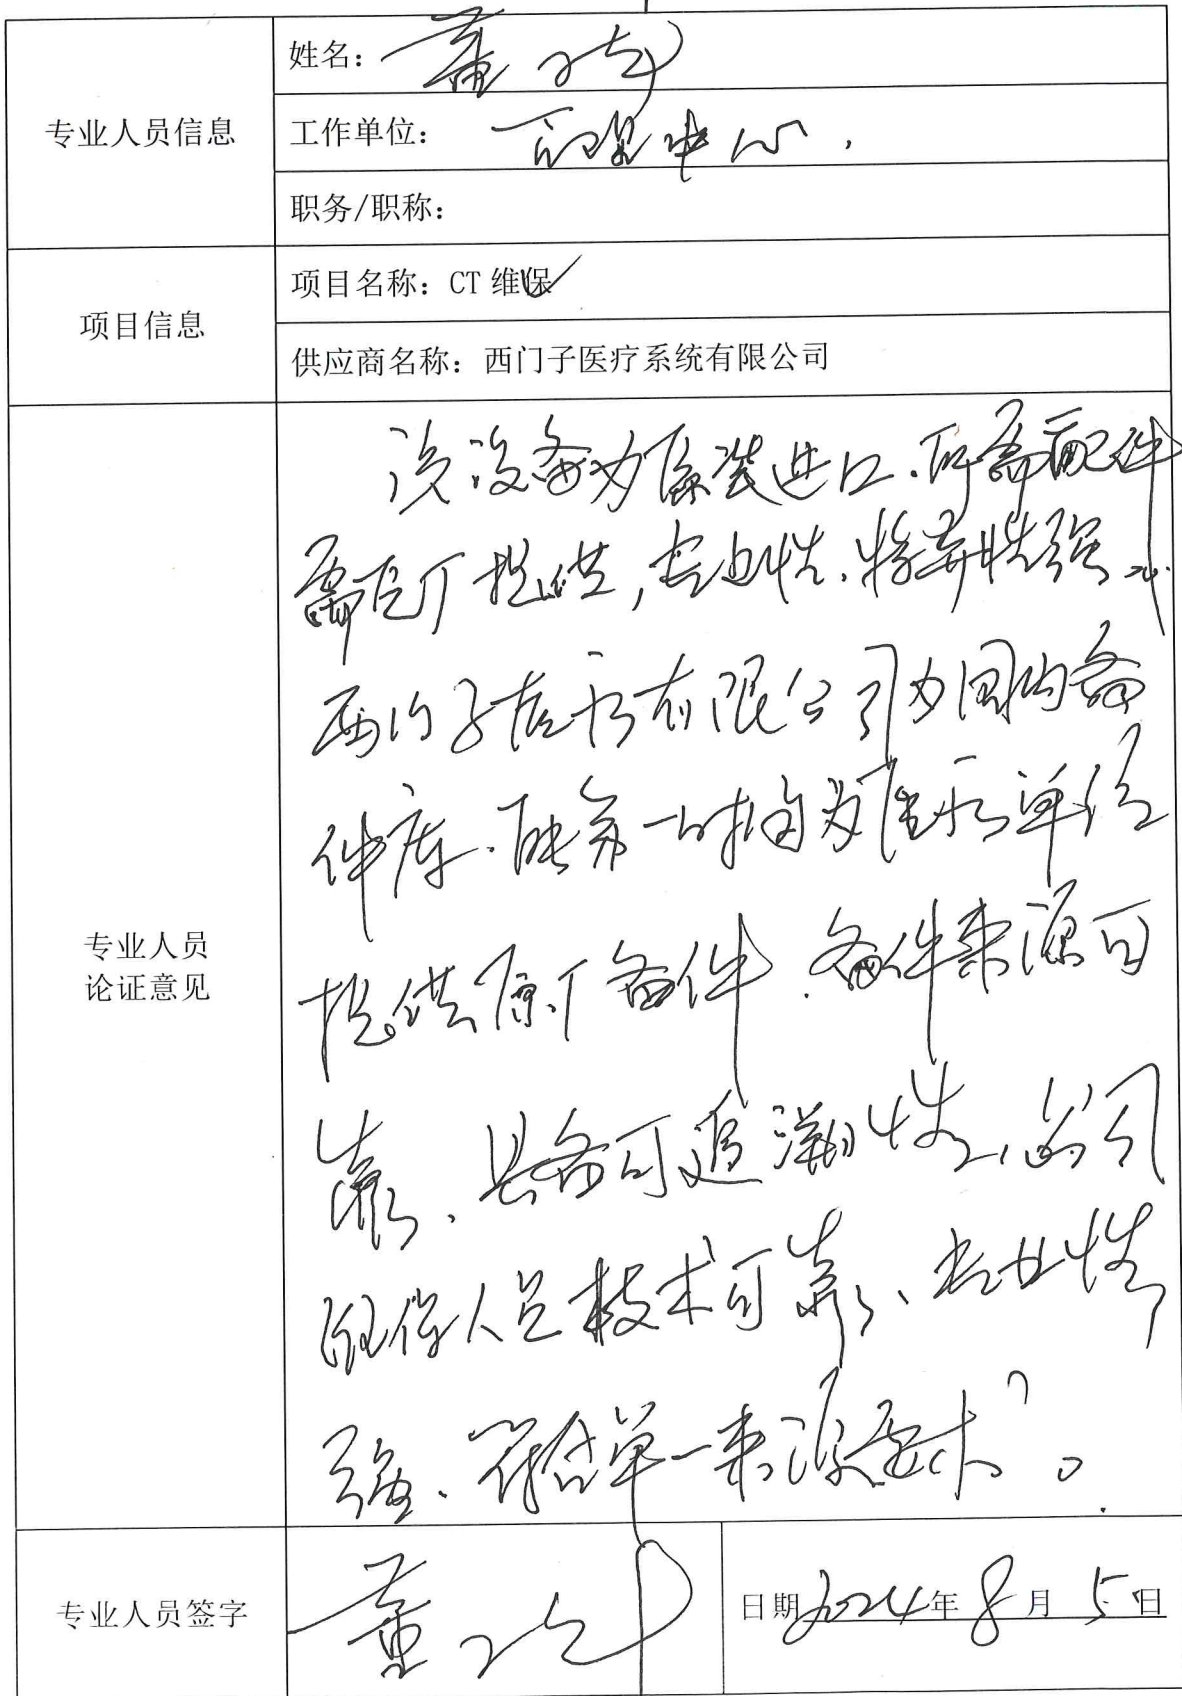 专业人员信息
姓名：董
工作单位：中心.
职务/职称：
项目信息
项目名称：CT 维保
供应商名称：西门子医疗系统有限公司
专业人员
论证意见
该设备为原装进口.所需配件
需原厂提供,专业性.特异性强.
西门子医疗有限公司为国内备
件库.能第一时间为医疗单位
提供原厂备件.备件来源可
靠、具备可追溯性,公司
维保人员技术可靠、专业性
强、符合单一来源要求。
专业人员签字
董
日期2024年8月5日